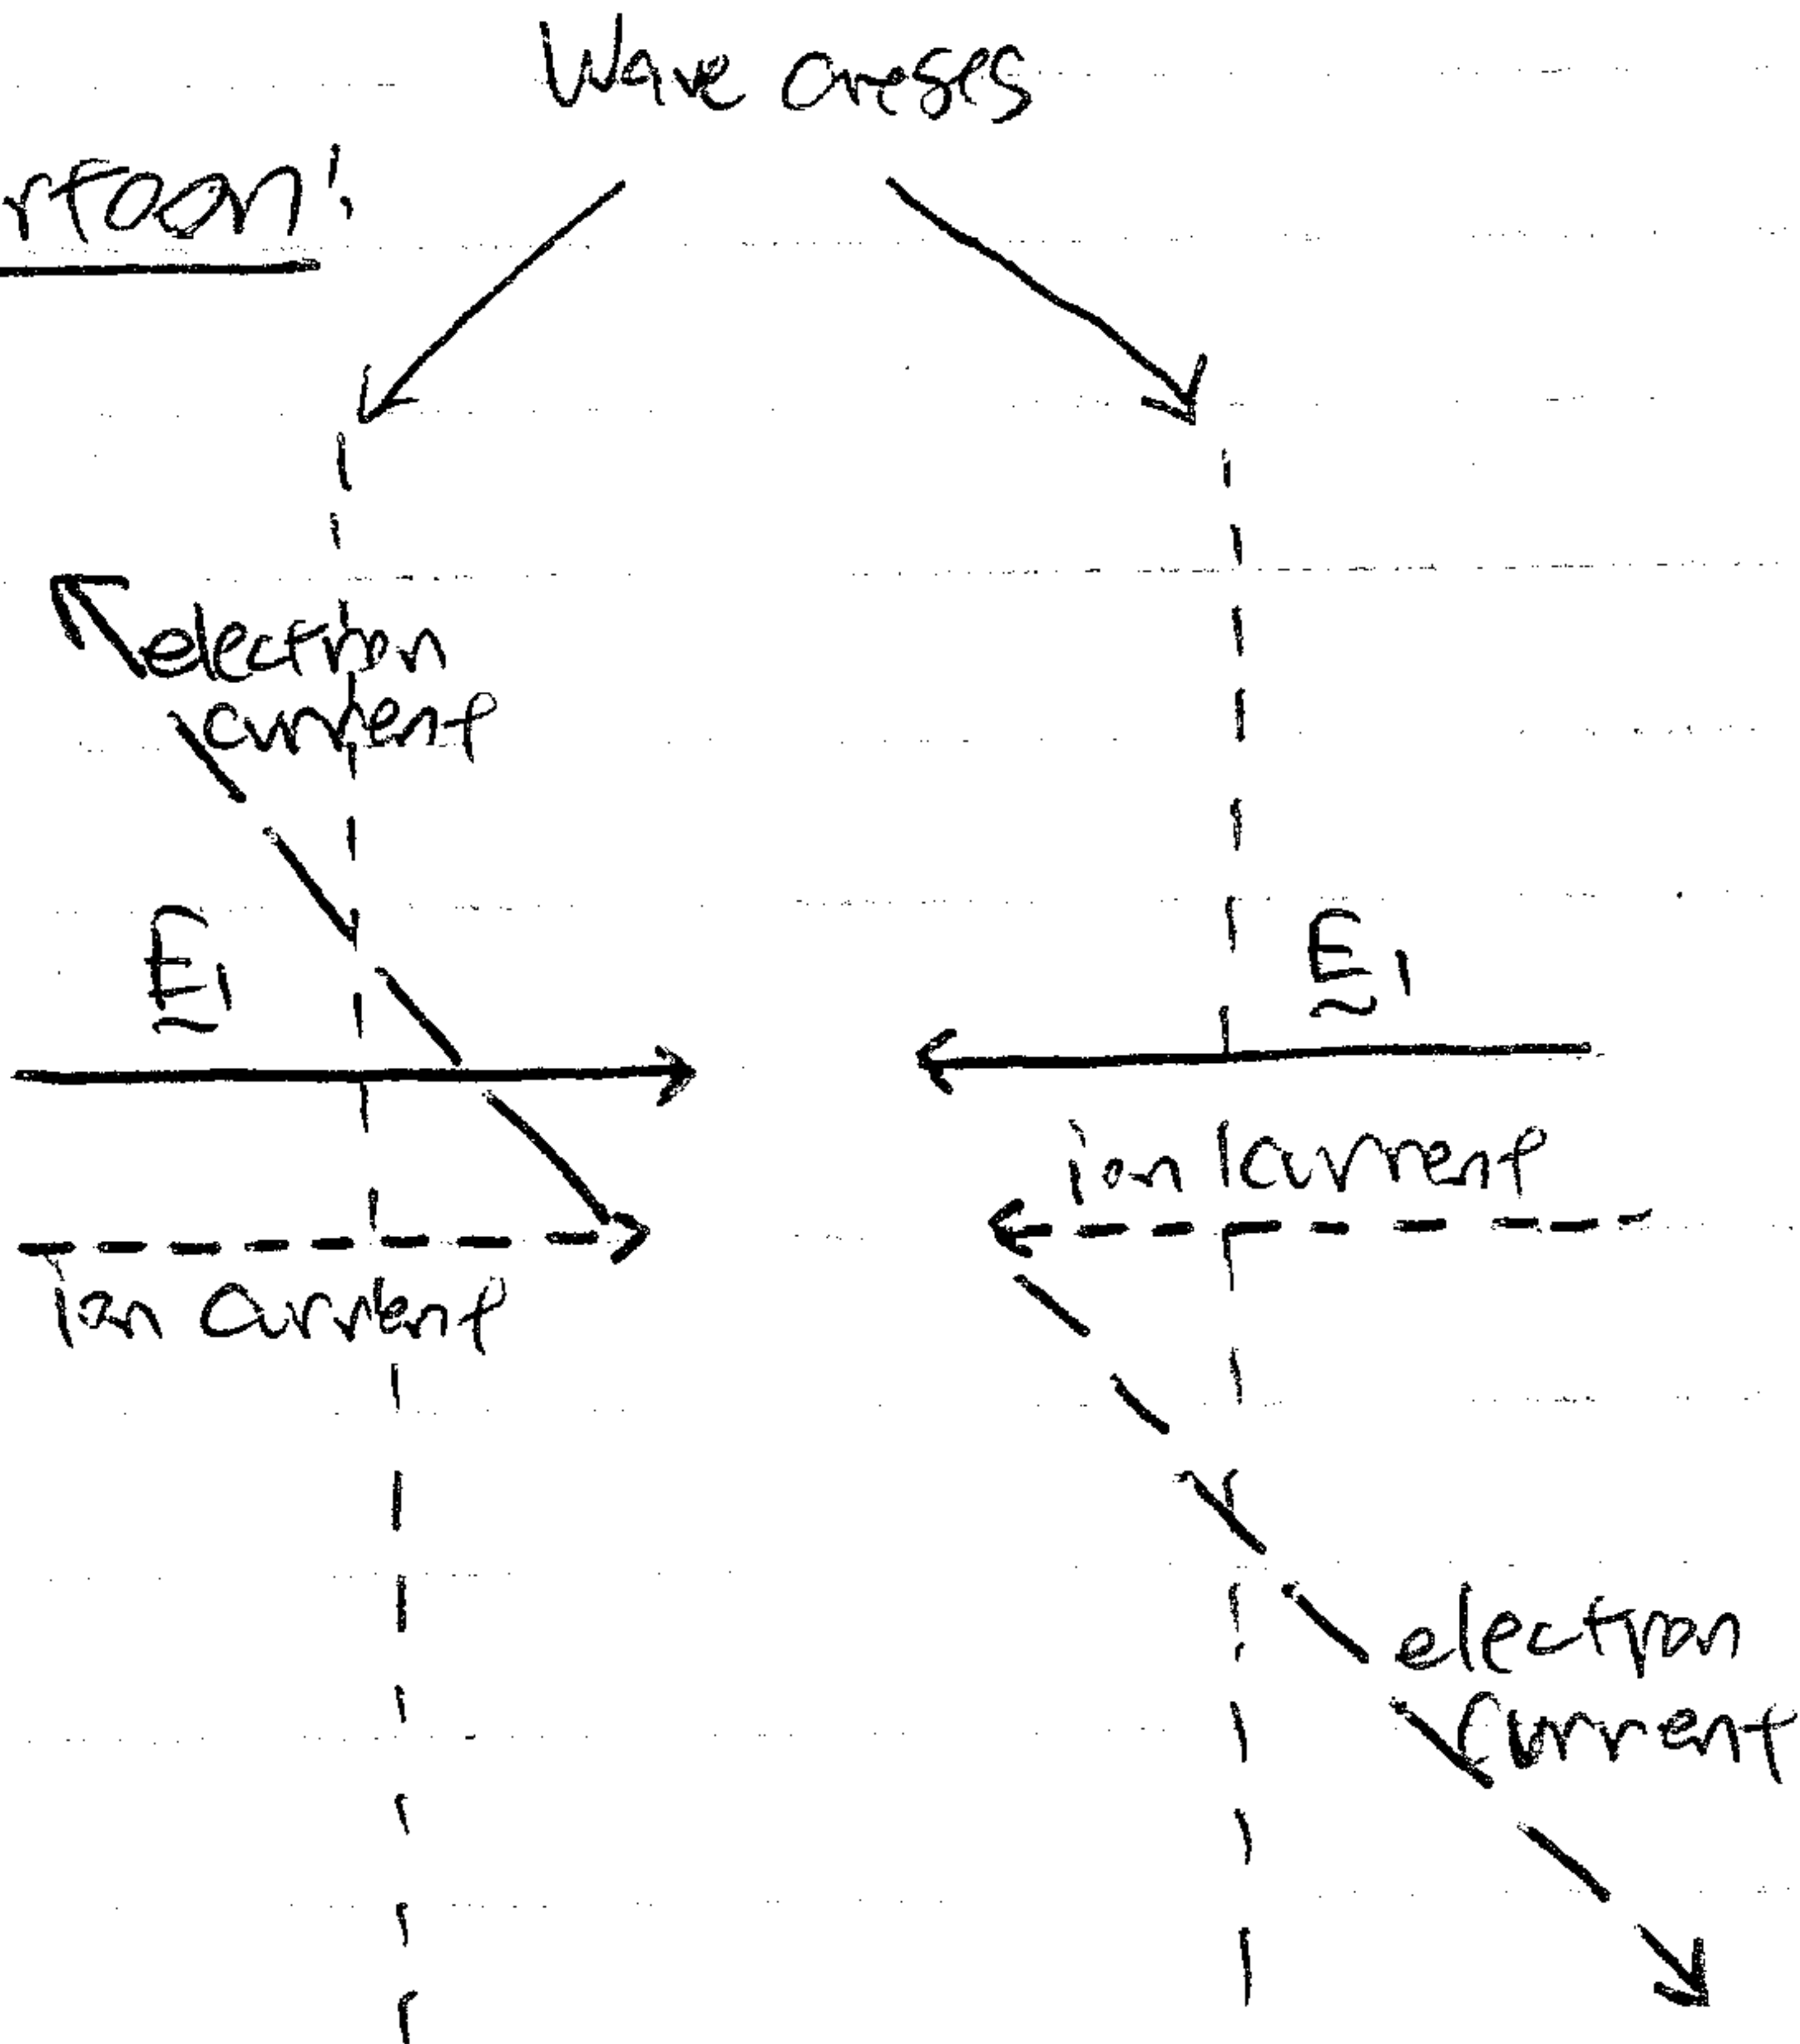 Wave crests
rtoon:
electron
current
E1
E1
ion current
ion current
electron
current